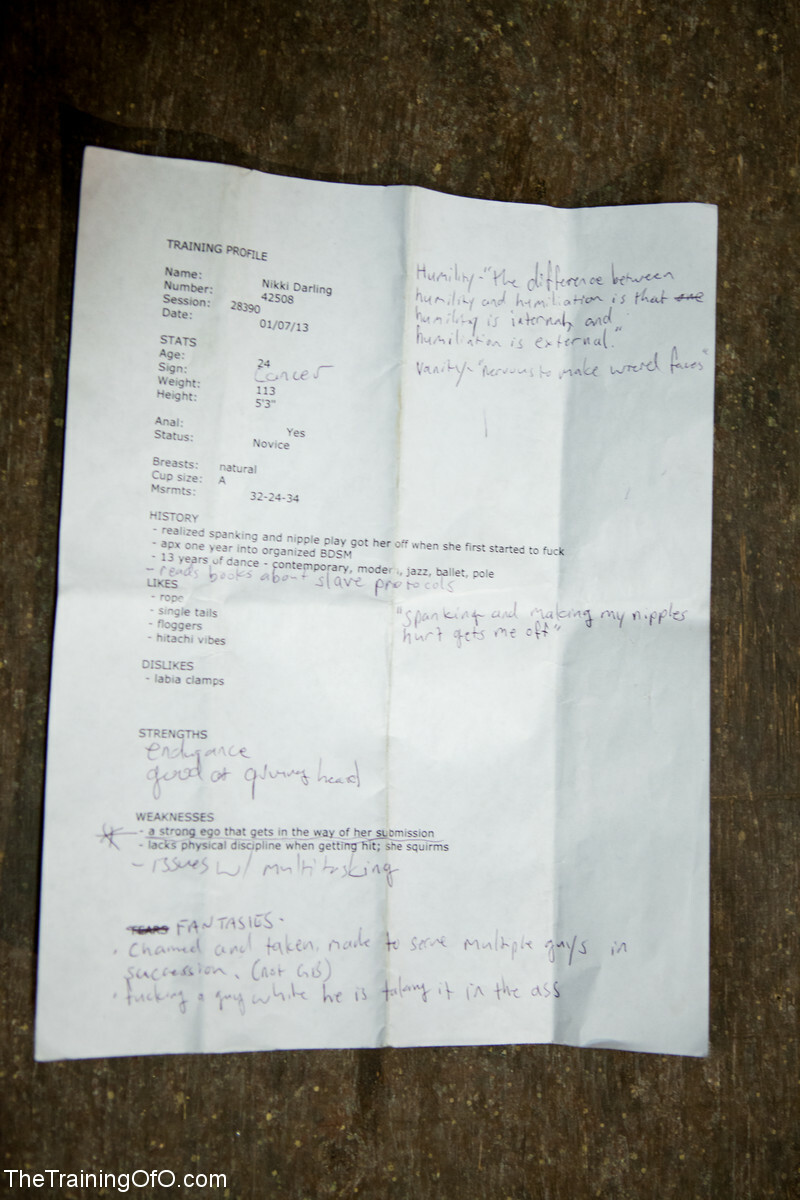 TRAINING PROFILE
Name: Nikki Darling
Number: 42508
Session: 28390
Date: 01/07/13
STATS
Age: 24
Sign: Cancer
Weight: 113
Height: 5'3"
Anal: Yes
Status: Novice
Breasts: natural
Cup size: A
Msrmts: 32-24-34
HISTORY
- realized spanking and nipple play got her off when she first started to fuck
- apx one year into organized BDSM
- 13 years of dance - contemporary, modern, jazz, ballet, pole
- reads books about slave protocols
LIKES
- rope
- single tails
- floggers
- hitachi vibes
DISLIKES
- labia clamps
STRENGTHS
endurance
good at giving head
WEAKNESSES
- a strong ego that gets in the way of her submission
- lacks physical discipline when getting hit; she squirms
- issues w/ multitasking
FANTASIES-
• Chained and taken, made to serve multiple guys in
succession. (not GB)
• fucking a guy while he is taking it in the ass
Humility - "the difference between
humility and humiliation is that
humility is internal, and
humiliation is external."
Vanity - "nervous to make weird faces"
"Spanking and making my nipples
hurt gets me off"
TheTrainingOfO.com